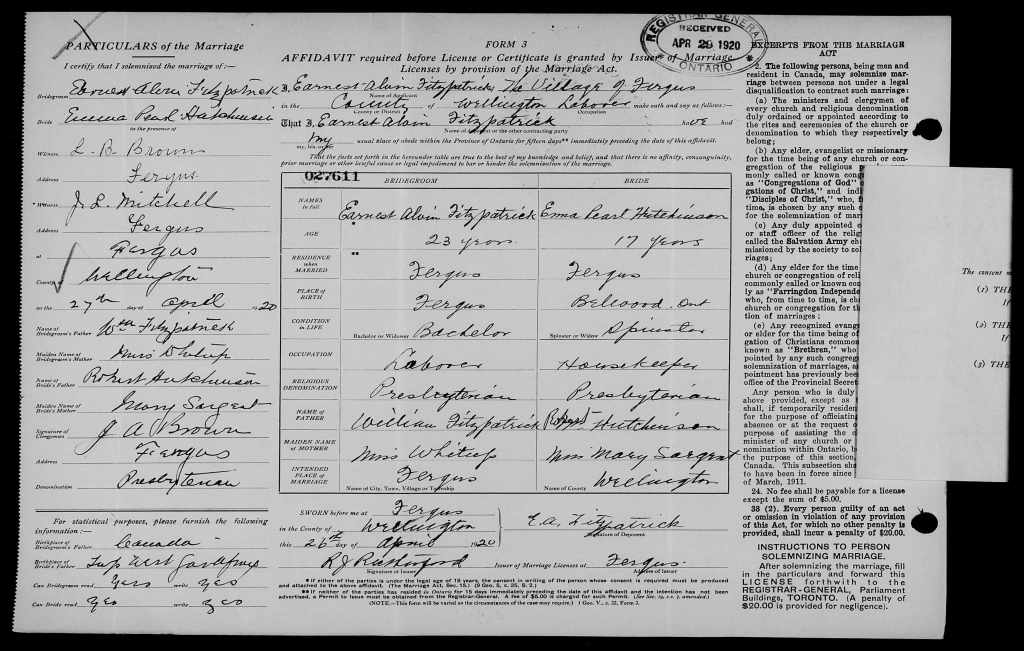 PARTICULARS of the Marriage
I certify that I solemnized the marriage of:—
Bridegroom Earnest Alvin Fitzpatrick
Bride Emma Pearl Hutchinson
in the presence of
Witness L. B. Brown
Address Fergus
Witness J. L. Mitchell
Address Fergus
at Fergus
County Wellington
on the 27th day of April 1920
Name of Bridegroom's Father Wm Fitzpatrick
Maiden Name of Bridegroom's Mother Miss
Name of Bride's Father Robert Hutchinson
Maiden Name of Bride's Mother Mary Sargent
Signature of Clergyman J A Brown
Address Fergus
Denomination Presbyterian
For statistical purposes, please furnish the following
information:—
Birthplace of Bridegroom's Father Canada
Birthplace of Bride's Father Twp West Garafraxa
Can Bridegroom read Yes write Yes
Can Bride read Yes write Yes
FORM 3
AFFIDAVIT required before License or Certificate is granted by Issuer of Marriage
Licenses by provision of the Marriage Act.
I, Earnest Alvin Fitzpatrick, The Village of Fergus
Name of Applicant
in the County of Wellington Laborer make oath and say as follows:—
County or District
Occupation
That I Earnest Alvin Fitzpatrick have had
Name of Applicant or the other contracting party
my usual place of abode within the Province of Ontario for fifteen days** immediately preceding the date of this affidavit.
my, his, or her
That the facts set forth in the hereunder table are true to the best of my knowledge and belief, and that there is no affinity, consanguinity,
prior marriage or other lawful cause or legal impediment to bar or hinder the solemnization of the marriage.
027611
BRIDEGROOM BRIDE
NAMES in full Earnest Alvin Fitzpatrick Emma Pearl Hutchinson
AGE 23 years 17 years
RESIDENCE when MARRIED ** Fergus Fergus
PLACE OF BIRTH Fergus Bellwood. Ont
CONDITION in LIFE Bachelor or Widower Bachelor Spinster or Widow Spinster
OCCUPATION Laborer Housekeeper
RELIGIOUS DENOMINATION Presbyterian Presbyterian
NAME OF FATHER William Fitzpatrick Robert Hutchinson
MAIDEN NAME of MOTHER Miss Miss Mary Sargent
INTENDED PLACE OF MARRIAGE Fergus Wellington
Name of City, Town, Village or Township Name of County
SWORN before me at Fergus
in the County of Wellington
this 26th day of April 1920
E. A. Fitzpatrick
Signature of Deponent
R J Rutherford Issuer of Marriage Licenses at Fergus.
Signature of Issuer Address of Issuer
*If either of the parties is under the legal age of 18 years, the consent in writing of the person whose consent is required must be produced
and attached to the above affidavit. (The Marriage Act, Sec. 15.) (9 Geo. 5, c. 35, S. 2.)
**If neither of the parties has resided in Ontario for 15 days immediately preceding the date of this affidavit and the intention has not been
advertised, a Permit to Issue must be obtained from the Registrar-General. A fee of $5.00 is charged for such Permit.
(NOTE.—This form will be varied as the circumstances of the case may require.) 1 Geo. V., c. 32, Form 3.
REGISTRAR GENERAL
RECEIVED
APR 29 1920
ONTARIO
EXCERPTS FROM THE MARRIAGE
ACT
2. The following persons, being men and
resident in Canada, may solemnize mar-
riage between persons not under a legal
disqualification to contract such marriage:
(a) The ministers and clergymen of
every church and religious denomination
duly ordained or appointed according to
the rites and ceremonies of the church or
denomination to which they respectively
belong;
(b) Any elder, evangelist or missionary
for the time being of any church or con-
gregation of the religious
monly called or known
as "Congregations of God"
gations of Christ," and
"Disciples of Christ," who,
time, is chosen by any such
for the solemnization of
(c) Any duly appointed
or staff officer of the
called the Salvation Army
missioned by the society to
riages;
(d) Any elder for the time
church or congregation of
commonly called or known
ly as "Farringdon
who, from time to time, is
church or congregation for
tion of marriages;
(e) Any recognized
or elder for the time being of
gation of Christians
known as "Brethren," who
pointed by any such
solemnization of marriages,
pointment has previously
office of the Provincial
Any person who is duly
above provided, except as
shall, if temporarily
for the purpose of
absence or at the request
purpose of assisting the
minister of any church or
nomination within Ontario,
the purpose of this section,
Canada. This subsection
to have been in force since
of March, 1911.
24. No fee shall be payable for a license
except the sum of $5.00.
38 (2). Every person guilty of an act
or omission in violation of any provision
of this Act, for which no other penalty is
provided, shall incur a penalty of $20.00.
INSTRUCTIONS TO PERSON
SOLEMNIZING MARRIAGE.
After solemnizing the marriage, fill
in the particulars and forward this
LICENSE forthwith to the
REGISTRAR-GENERAL, Parliament
Buildings, TORONTO. (A penalty of
$20.00 is provided for negligence).
The consent
(1) THE
If
(2) THE
If
(3) THE